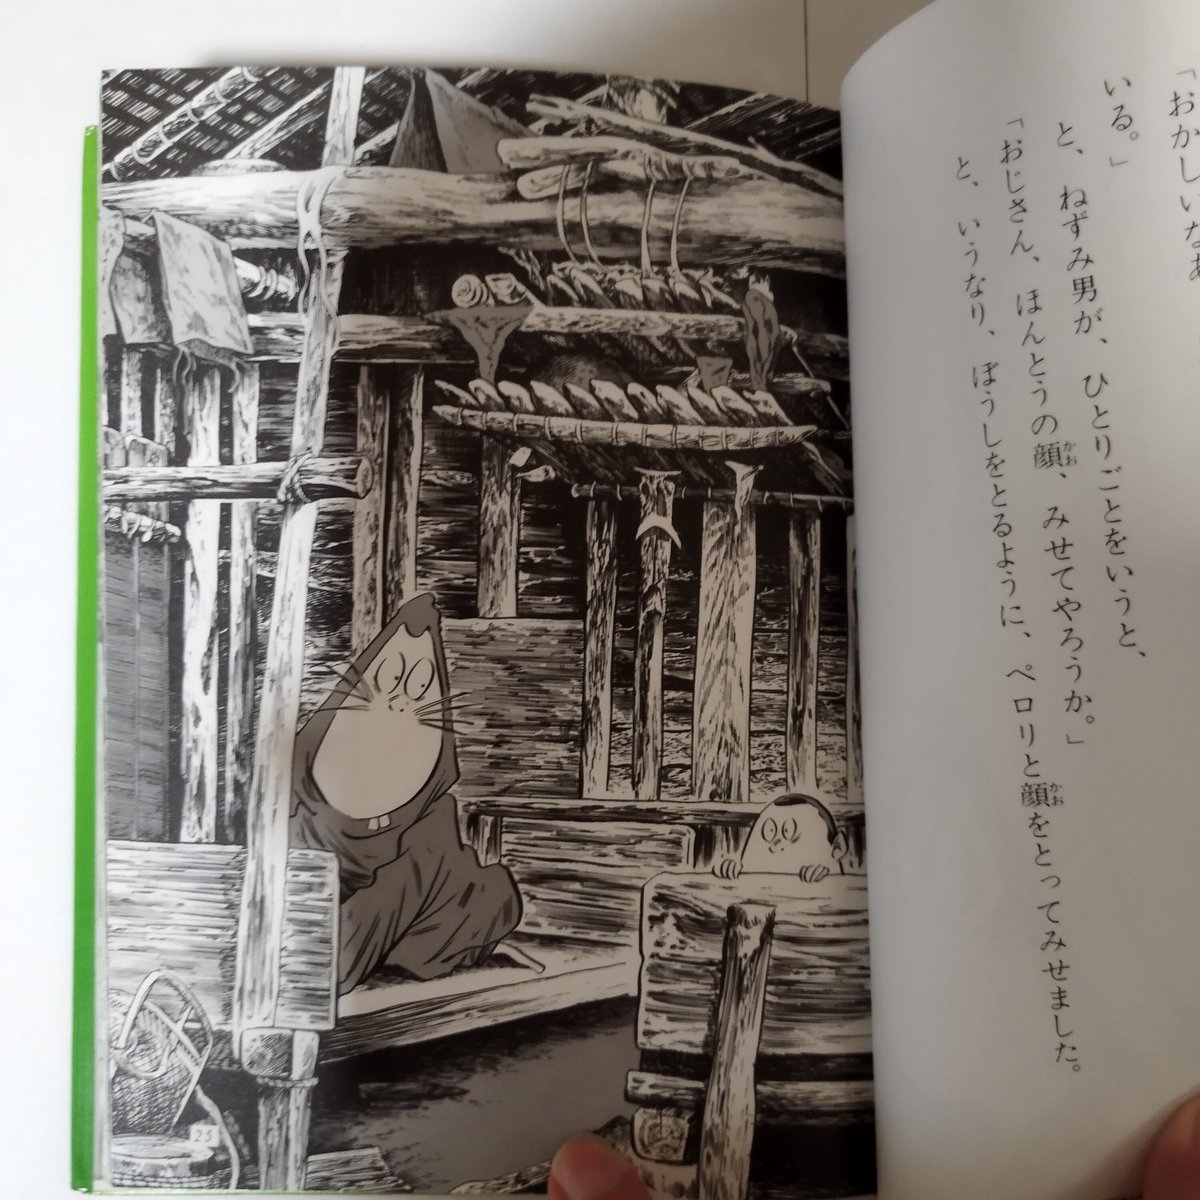 「おかしいなあ
いる。」
と、ねずみ男が、ひとりごとをいうと、
「おじさん、ほんとうの顔、みせてやろうか。」
と、いうなり、ぼうしをとるように、ペロリと顔をとってみせました。
25